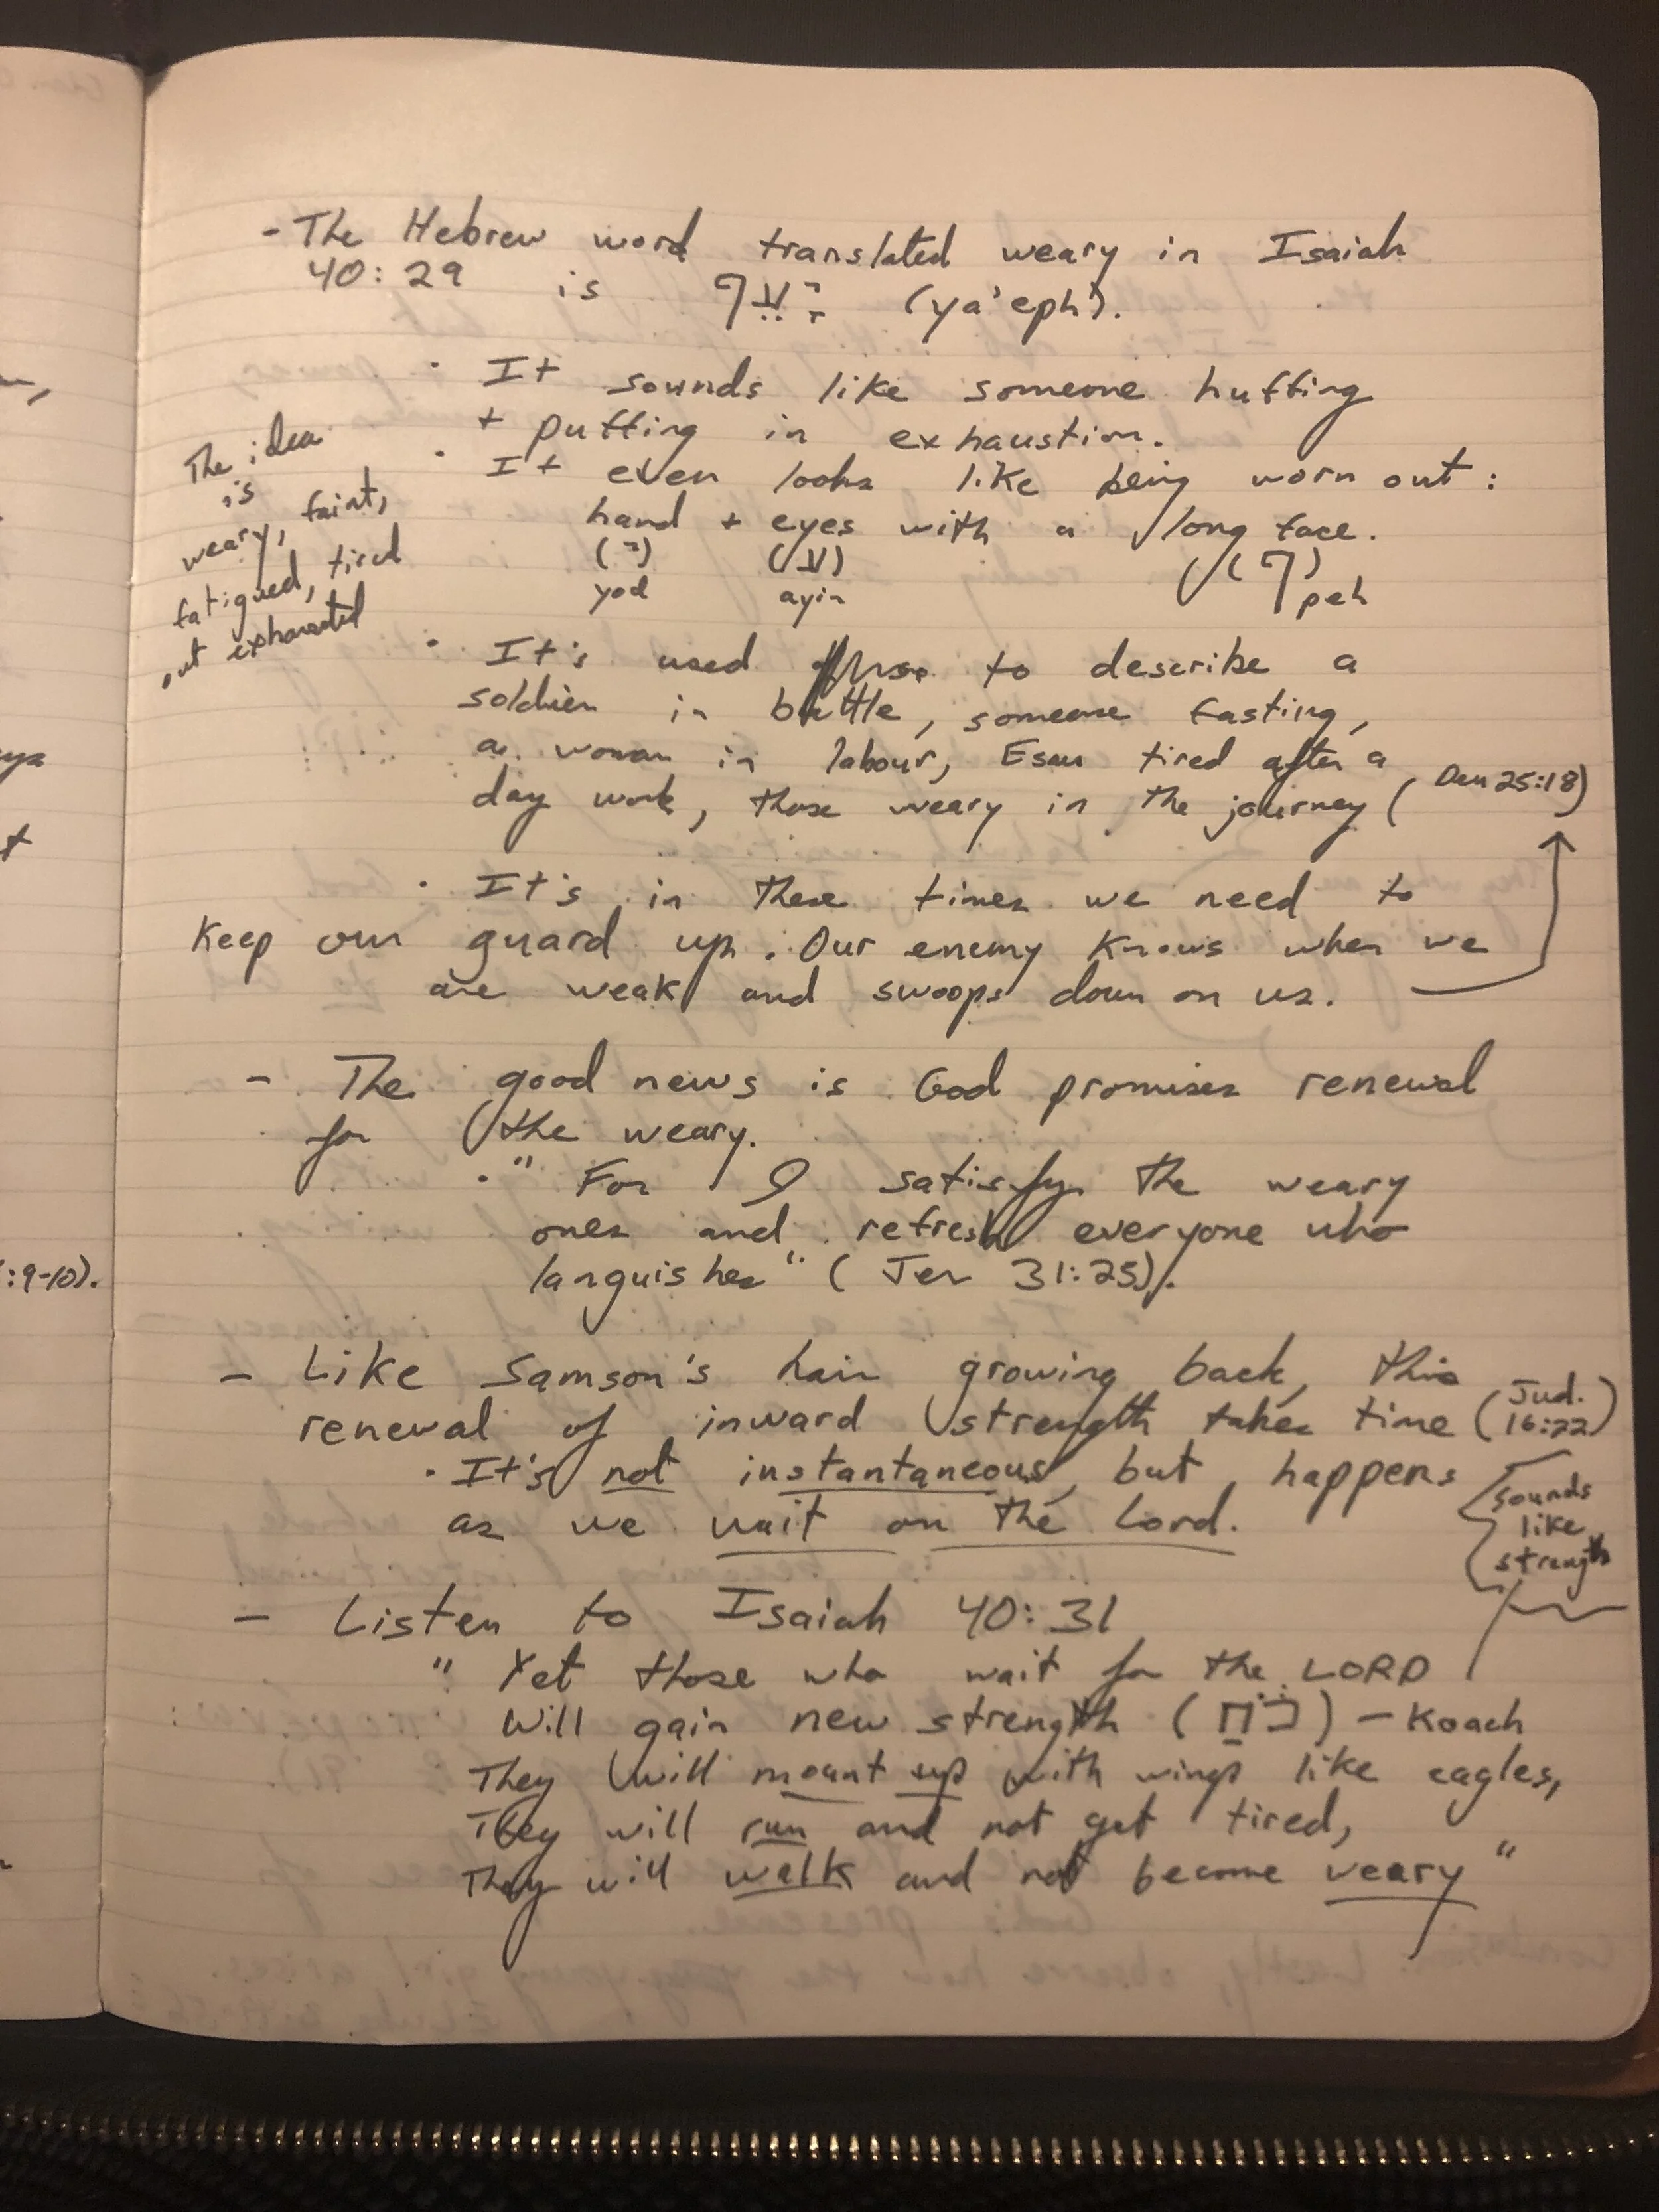 - The Hebrew word translated weary in Isaiah
40:29 is יָעֵף (ya'eph).
· It sounds like someone huffing
+ puffing in exhaustion.
· It even looks like being worn out:
hand + eyes with a long face.
(י) (ע) (ף)
yod ayin peh
The idea
is
weary, faint,
fatigued, tired
out exhausted
· It's used to describe a
soldier in battle, someone fasting,
a woman in labour, Esau tired after a
day work, those weary in the journey (Deu 25:18)
· It's in these times we need to
keep our guard up. Our enemy knows when we
are weak and swoops down on us.
- The good news is God promises renewal
for the weary.
· " For I satisfy the weary
ones and refresh everyone who
languishes" (Jer 31:25).
- Like Samson's hair growing back, this
renewal of inward strength takes time (Jud.
16:22)
· It's not instantaneous, but happens
as we wait on the Lord.
sounds
like
strength
- Listen to Isaiah 40:31
" Yet those who wait for the LORD
Will gain new strength (כֹּחַ) - Koach
They will mount up with wings like eagles,
They will run and not get tired,
They will walk and not become weary "
:9-10).